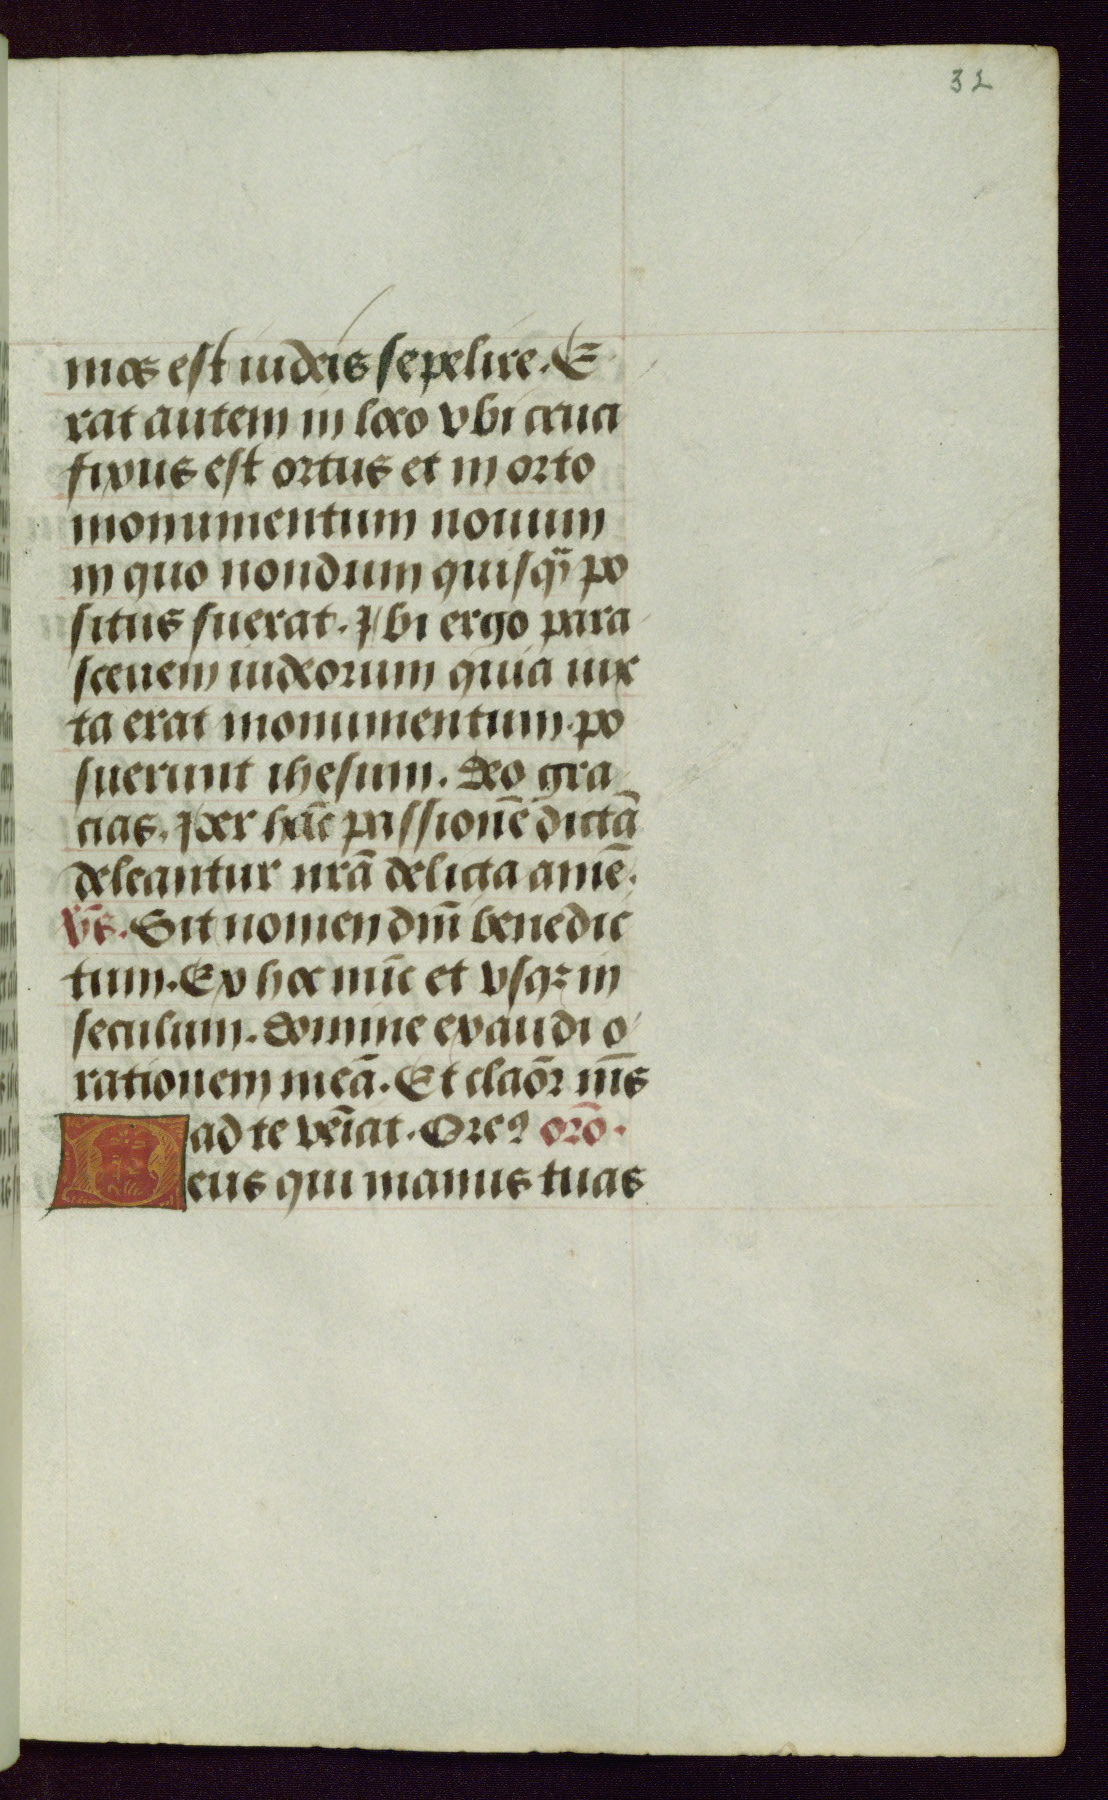 32
mos est iudeis sepelire. E
rat autem in loco vbi cruci
fixus est ortus et in orto
monumentum nouum
in quo nondum quisq̃ po
situs fuerat. Ibi ergo para
sceuem iudeorum quia iux
ta erat monumentum po
suerunt ihesum. Deo gra
cias. Per hãc passionẽ dictã
deleantur nrã delicta amẽ.
v̅s. Sit nomen dñi benedic
tum. Ex hoc nũc et vsqꝫ in
seculum. Domine exaudi o
rationem meã. Et claõr m̅s
ad te vẽiat. Oreꝰ orõ.
Deus qui manus tuas